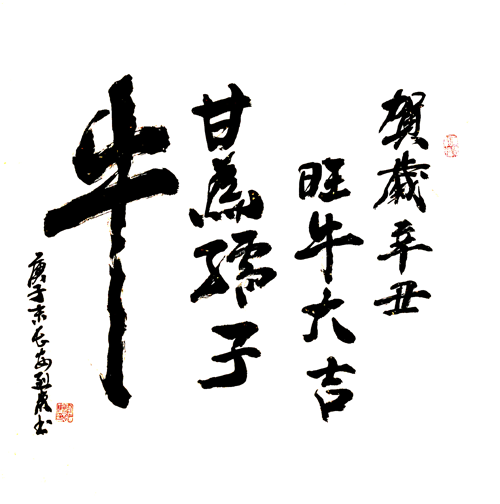 賀歲辛丑
旺牛大吉
甘為孺子
牛
庚子末长安书